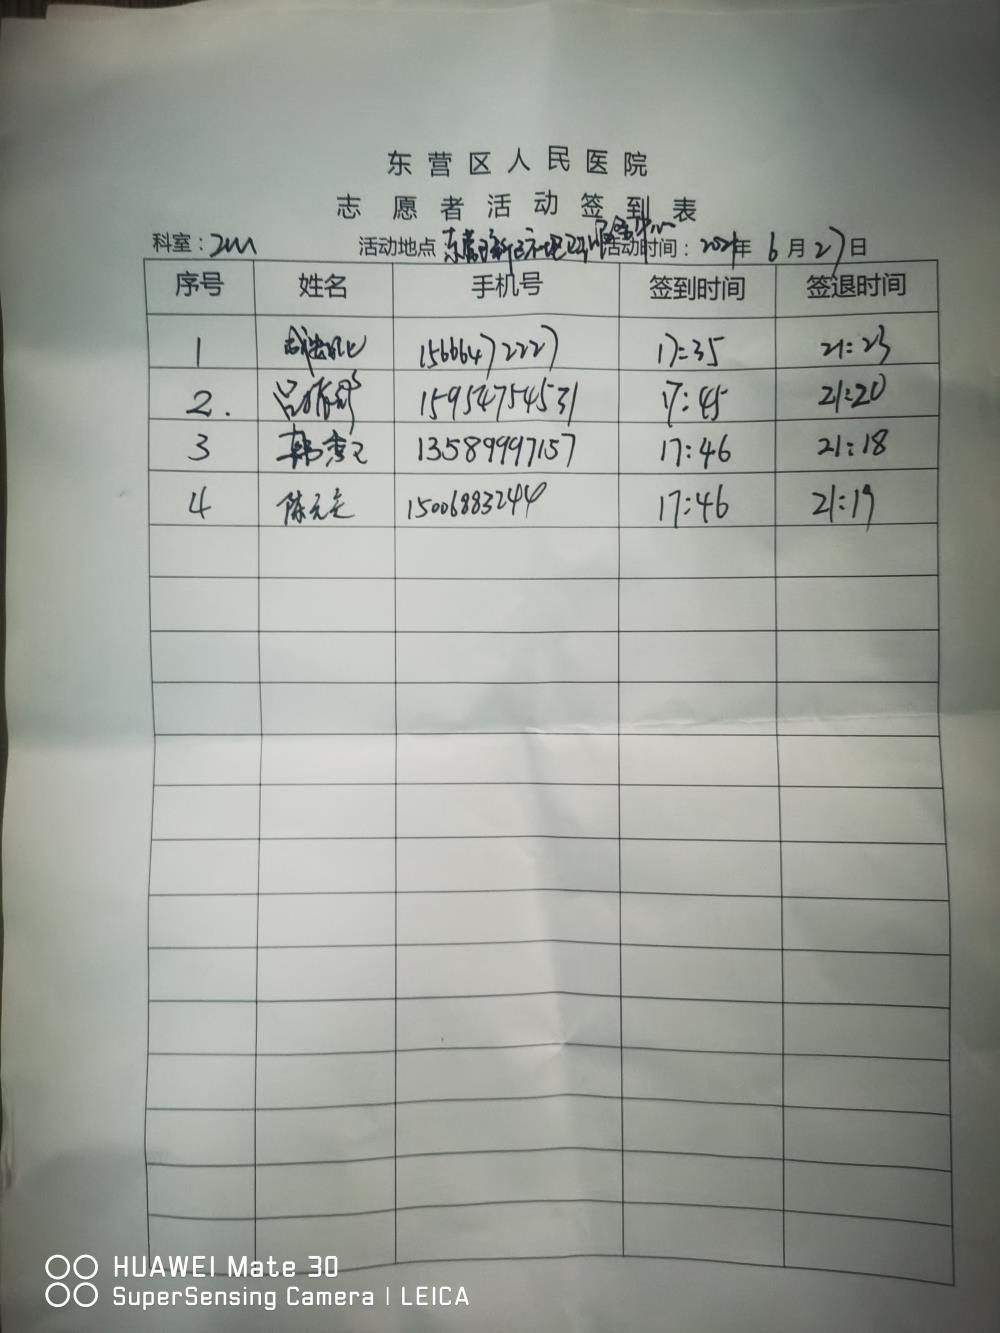 东营区人民医院
志愿者活动签到表
科室： 活动地点 东营区 活动时间：2021年6月27日
序号 姓名 手机号 签到时间 签退时间
1 15666472227 17:35 21:23
2. 15954754531 17:45 21:20
3 韩秀卫 13589997157 17:46 21:18
4 陈元 15006883244 17:46 21:19
HUAWEI Mate 30
SuperSensing Camera | LEICA